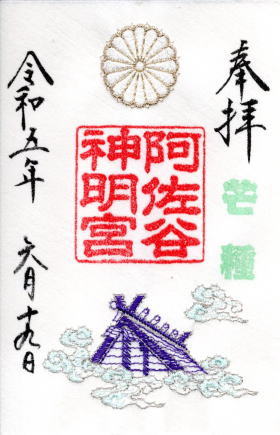 奉拝
芒種
阿佐谷
神明宮
令和五年 六月十九日